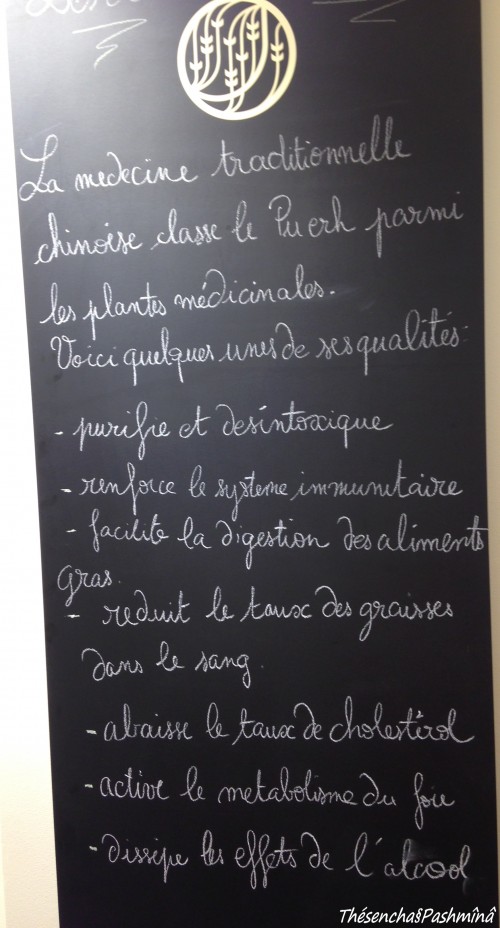 La medecine traditionnelle
chinoise classe le Pu erh parmi
les plantes médicinales.
Voici quelques unes de ses qualités:
- purifie et desintoxique
- renforce le systeme immunitaire
- facilite la digestion des aliments
gras.
- reduit le taux des graisses
dans le sang.
- abaisse le taux de cholestérol
- active le metabolisme du foie
- dissipe les effets de l'alcool
Thésencha§Pashmînâ